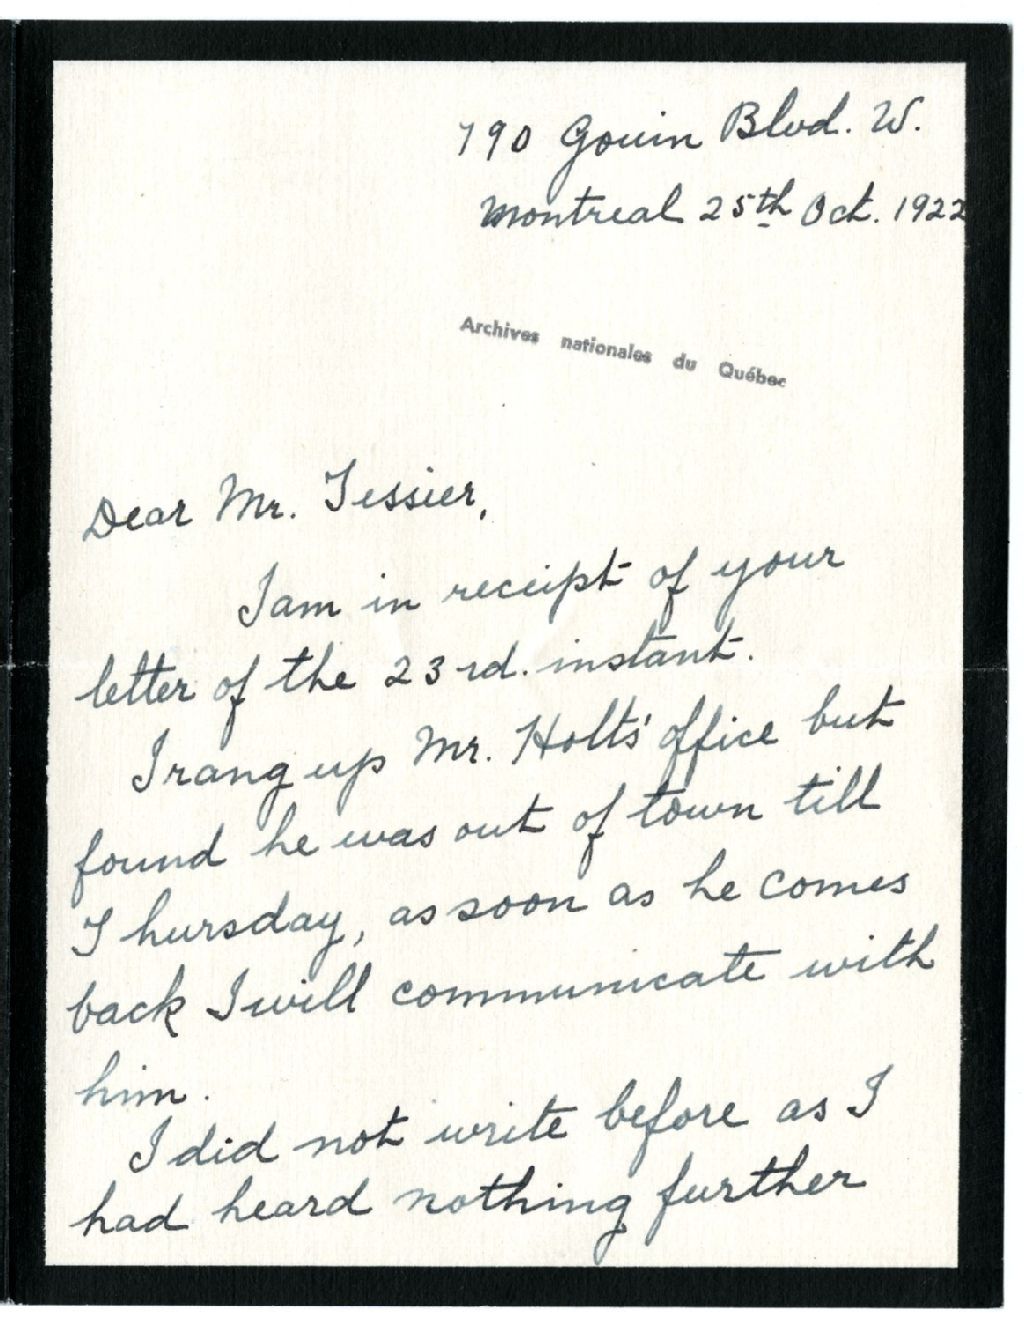 790 Gouin Blvd. W.
Montreal 25th Oct. 1922
Archives nationales du Québec
Dear Mr. Tessier,
I am in receipt of your
letter of the 23rd. instant.
I rang up Mr. Holts' office but
found he was out of town till
Thursday, as soon as he comes
back I will communicate with
him.
I did not write before as I
had heard nothing further